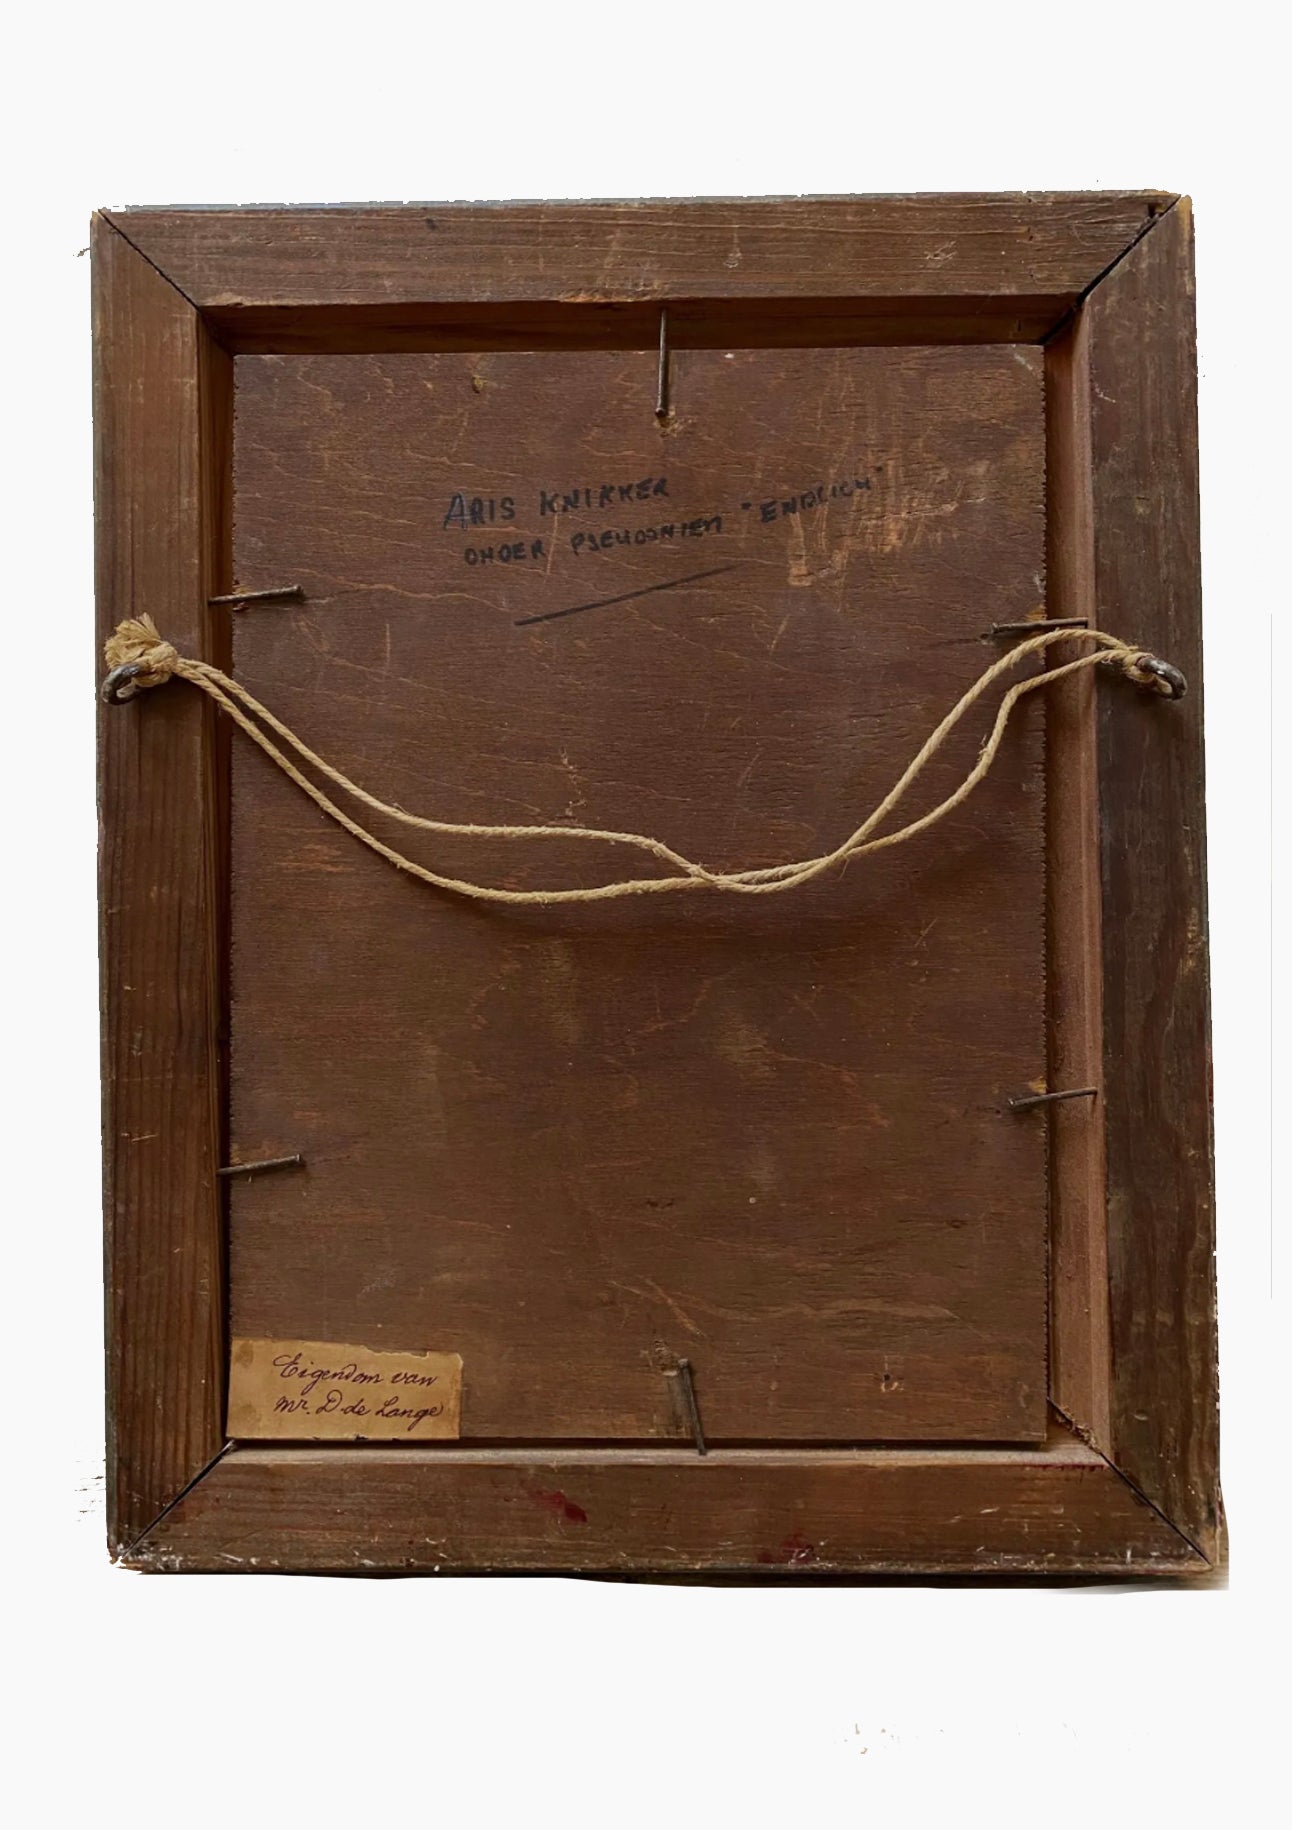 ARIS KNIKKER
ONDER PSEUDONIEM "ENDLICH"
Eigendom van
mr. D. de Lange